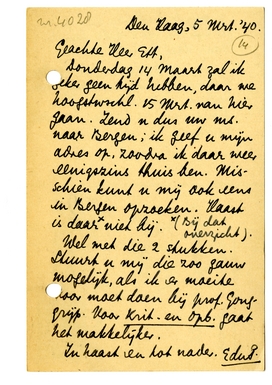 nr. 4028
Den Haag, 5 Mrt. '40.
14
Geachte Heer Ett,
Donderdag 14 Maart zal ik
zeker geen tijd hebben, daar we
hoogstwschl. 15 Mrt. van hier
gaan. Zend u dus uw mt.
naar Bergen; ik geef u mijn
adres op, zoodra ik daar weer
eenigszins thuis ben. Mis-
schien kunt u mij ook eens
in Bergen opzoeken. Haast
is daar˟ niet bij. ˟(Bij dat
overzicht).
Wel met die 2 stukken.
Stuurt u mij die zoo gauw
mogelijk, als ik er moeite
voor moet doen bij prof. Gong-
grijp. Voor Krit. en Opb. gaat
het makkelijker.
In haast en tot nader. EduP.